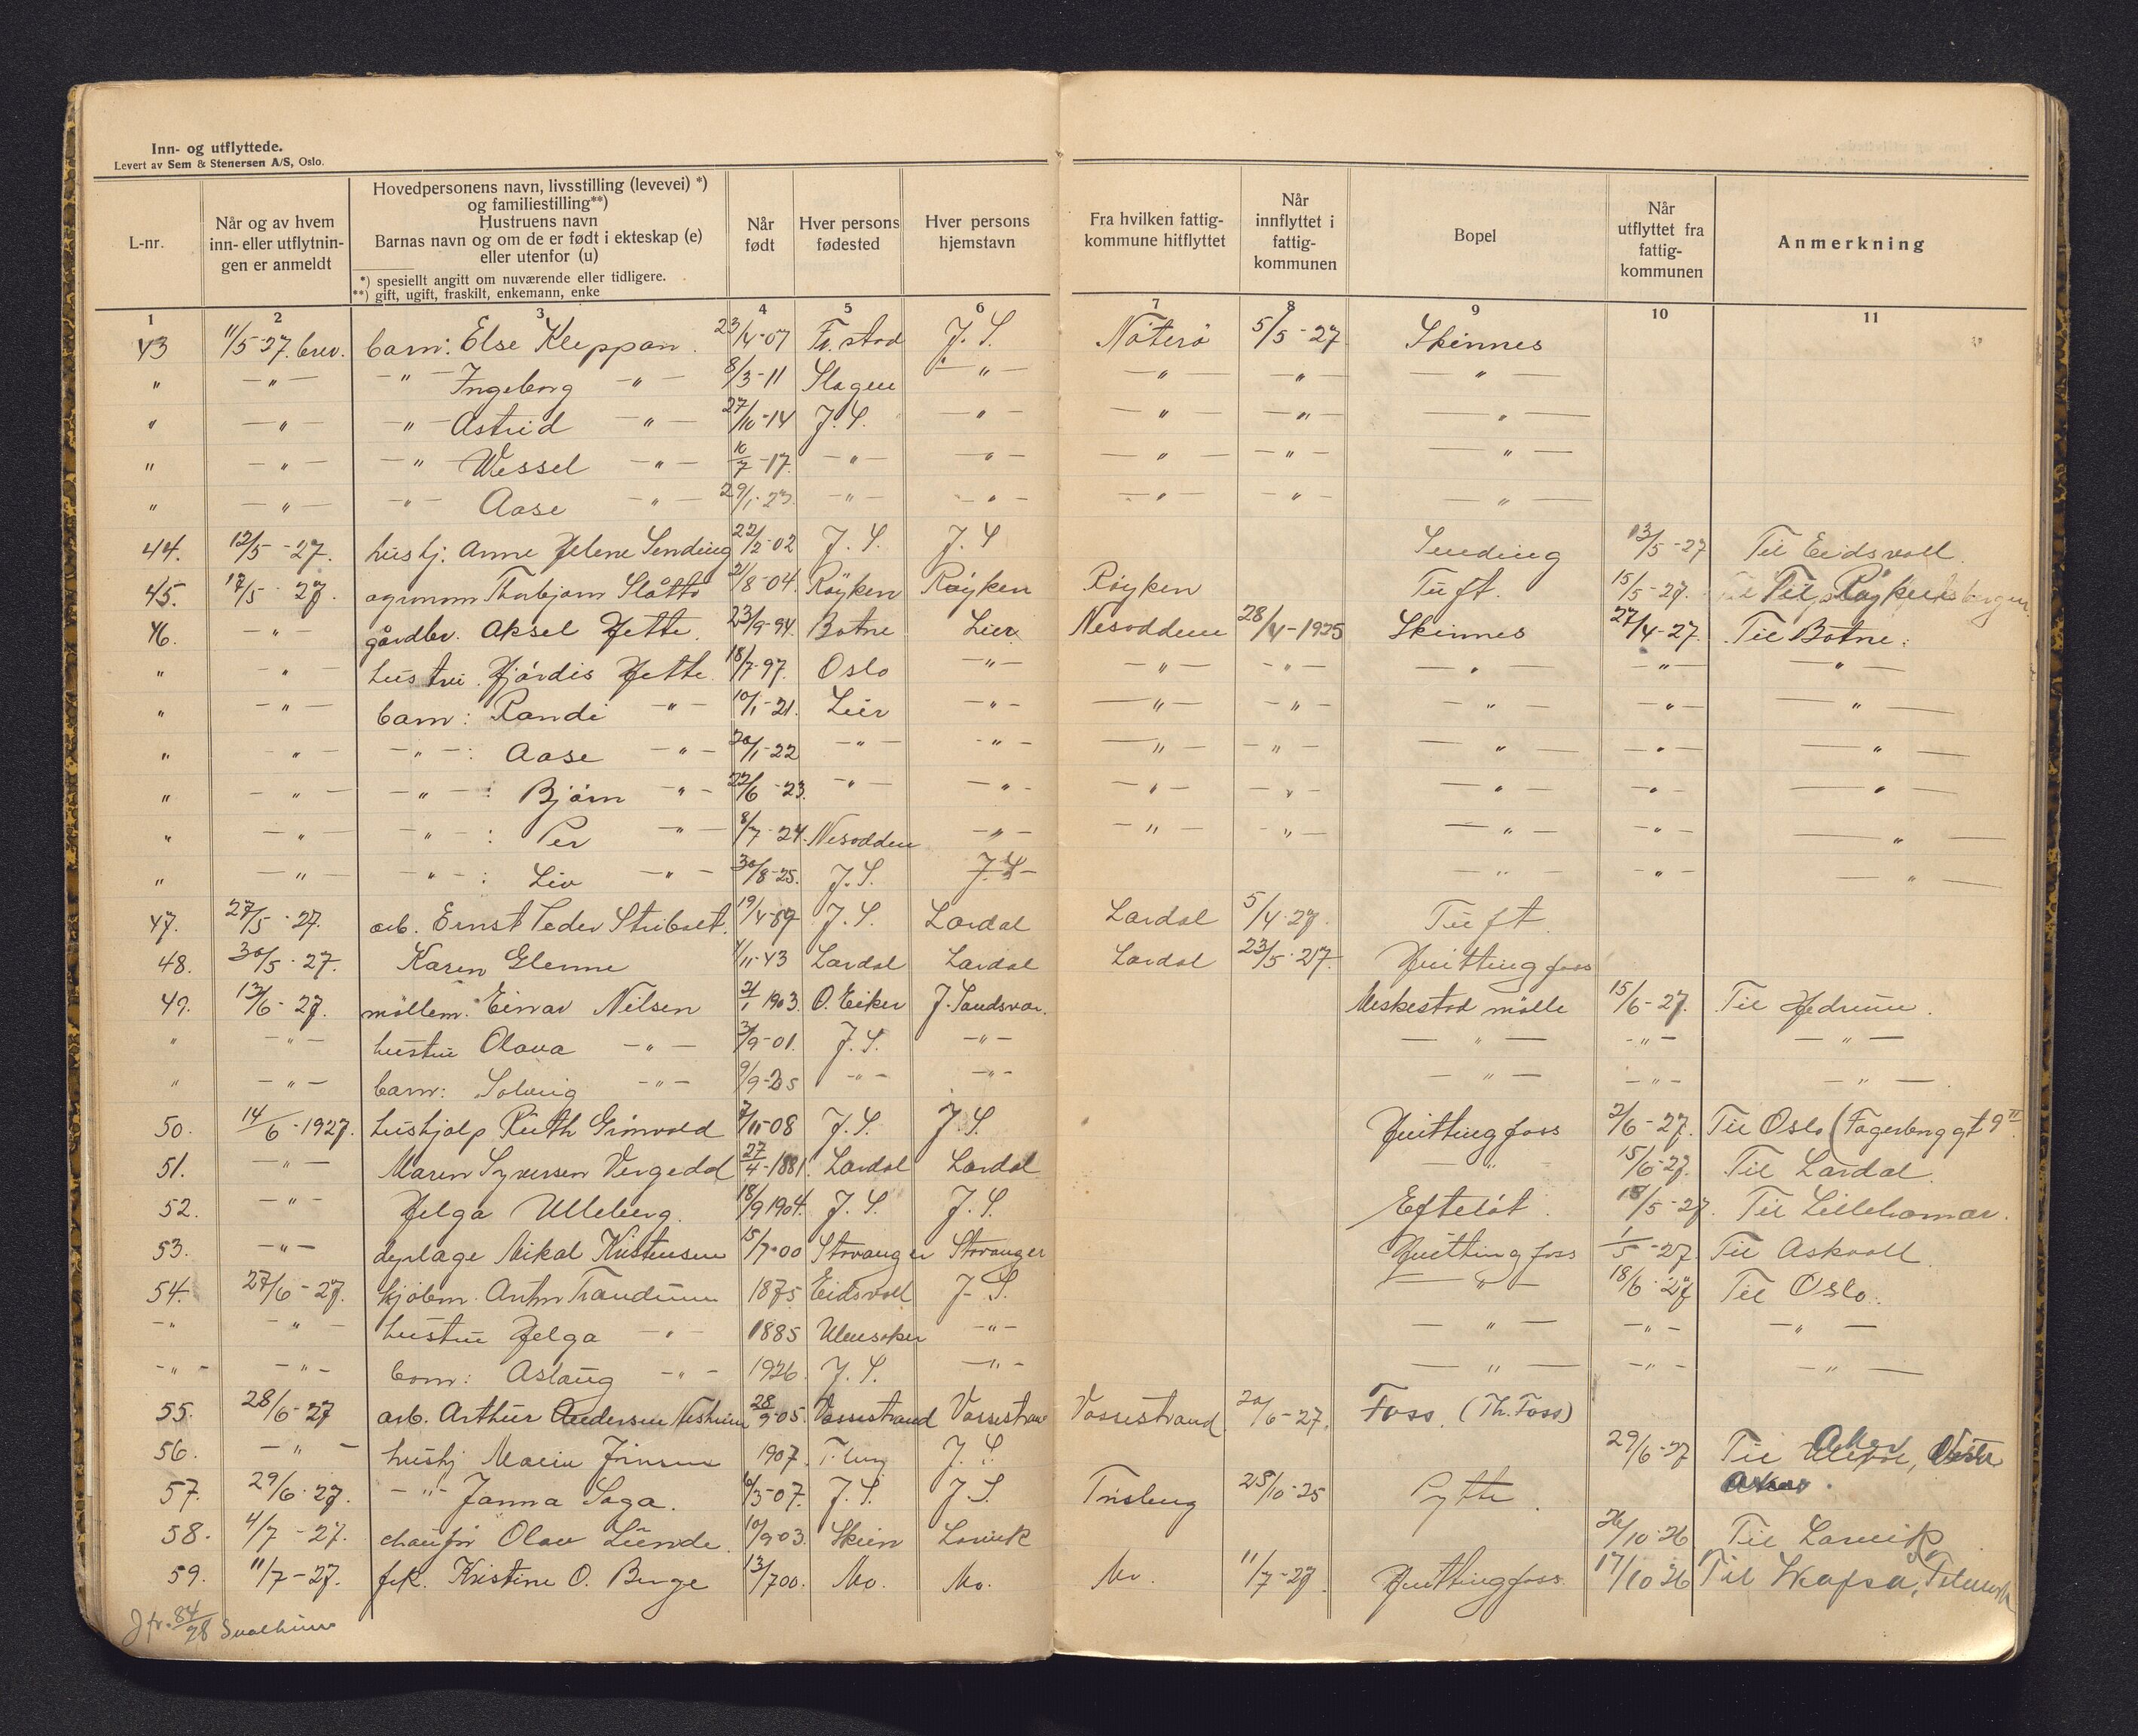 Inn- og utflyttede.
Levert av Sem & Stenersen A/S, Oslo.
L-nr.
Når og av hvem inn- eller utflytnin- gen er anmeldt
Hovedpersonens navn, livsstilling (levevei) *) og familiestilling**) Hustruens navn Barnas navn og om de er født i ekteskap (e) eller utenfor (u)
*) spesiellt angitt om nuværende eller tidligere.
**) gift, ugift, fraskilt, enkemann, enke
Når født
Hver persons fødested
Hver persons hjemstavn
Fra hvilken fattig- kommune hitflyttet
Når innflyttet i fattig- kommunen
Bopel
Når utflyttet fra fattig- kommunen
Anmerkning
1 2 3 4 5 6 7 8 9 10 11
43 11/5-27. brev. barn: Else Kleppan. 23/4-07 Fr.stad J. S. Nøterø 5/5-27 Skinnes
" -"- -"- Ingeborg -"- 8/3-11 Slagen -"- -"- -"- -"-
" -"- -"- Astrid -"- 27/10-14 J. S. -"- -"- -"- -"-
" -"- -"- Wessel -"- 10/7-17. -"- -"- -"- -"- -"-
" -"- -"- Aase -"- 29/1-23. -"- -"- -"- -"- -"-
44. 12/5-27. hushj: Anne Helene Sending 22/2-02 J. S. J. S Sending 13/5-27 Til Eidsvoll.
45. 12/5-27. agronom Thorbjørn Slåtto 2/8-04. Røyken Røyken Røyken Tuft. 15/5-27. Til Røyken
46. -"- gårdbr. Aksel Hette. 23/9-94. Botne Lier Nesodden 28/4-1925 Skinnes 27/4-27. Til Botne.
" -"- hustru Hjørdis Hette 18/7-97. Oslo -"- -"- -"- -"- -"- -"-
" -"- barn: Randi -"- 10/1-21. Lier -"- -"- -"- -"- -"- -"-
" -"- -"-: Aase -"- 20/1-22 -"- -"- -"- -"- -"- -"- -"-
" -"- -"-: Bjørn -"- 22/6-23. -"- -"- -"- -"- -"- -"- -"-
" -"- -"-: Per -"- 8/7-24. Nesodden -"- -"- -"- -"- -"- -"-
" -"- -"-: Liv -"- 30/8-25. J. S. J. S -"- -"- -"-
47. 27/5-27. arb. Ernst Peder Stribolt. 19/4-87 J. S. Lardal Lardal 5/4-27. Tuft.
48. 30/5-27. Karen Glenne 1/11-43 Lardal Lardal Lardal 23/5-27. Hvittingfoss
49. 13/6-27. møllem. Einar Nilsen 2/1 1903. O. Eiker J. Sandsvær. Meskestad mølle 15/6-27. Til Hedrum.
" -"- hustru Olava -"- 3/9-01. J. S. -"- -"- -"- -"-
" -"- barn: Solveig -"- 9/9-25 -"- -"- -"- -"- -"-
50. 14/6-1927. hushjelp Ruth Grønvold 7/11-08 J. S. J. S. Hvittingfoss 2/6-27. Til Oslo (Fagerborggt 9 II
51. -"- Maren Syversen Vergedal 27/4-1881. Lardal Lardal -"- 15/6-27. Til Lardal.
52. -"- Helga Ulleberg. 18/9 1904. J. S. J. S. Efteløt. 18/5-27. Til Lillehamar.
53. -"- dyrlæge Mikal Kristensen 15/7-00 Stavanger Stavanger Hvittingfoss 1/5-27 Til Askvoll
54. 27/6-27. kjøbm. Anton Trandum 1875 Eidsvoll J. S. -"- 18/6-27 Til Oslo.
-"- -"- hustru Helga -"- 1885 Ullensaker -"- -"- -"- -"-
-"- -"- barn: Aslaug -"- 1926. J. S. -"- -"- -"- -"-
55. 28/6-27 arb. Arthur Andersen Nesheim 28/9-05. Vossestrand Vossestran Vossestrand 20/6-27. Foss. (Th. Foss)
56. -"- hushj 1907. J. S. 29/6-27 Til Aker
57. 29/6-27. -"- Janna Saga. 6/3-07. J. S. J. S. Tønsberg 25/10-25 Pytte.
58. 4/7-27. chaufør Olav Lunde. 10/9 03. Skien Larvik 26/10-26 Til Larvik
59. 11/7-27. frk. Kristine O. Berge 13/7 00. Mo. Mo. Mo. 11/7-27 Hvittingfoss 17/10 26 Til Telemark
Jfr. 84/28